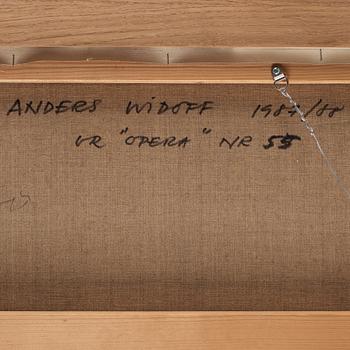 ANDERS WIDOFF 1987/88
UR "OPERA" NR 55